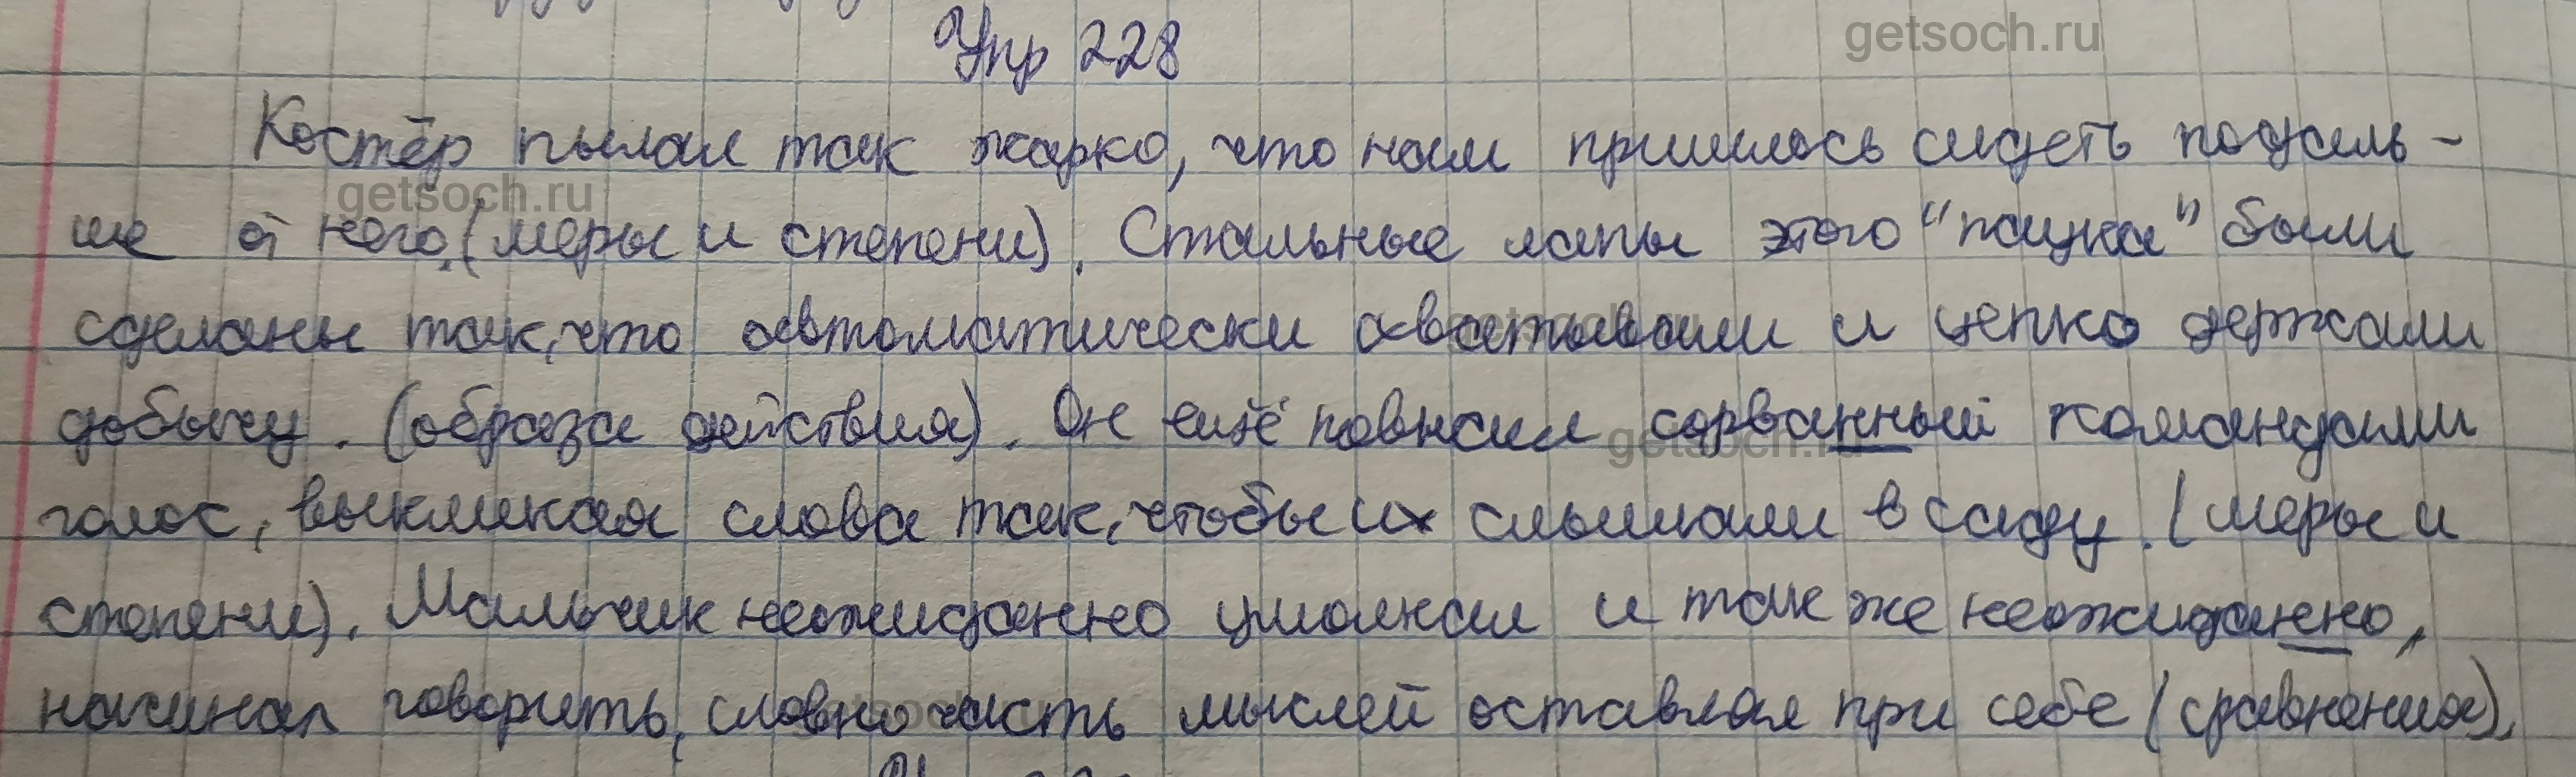 Упр 228
getsoch.ru
Костёр пылал так жарко, что нам пришлось сидеть подаль-
getsoch.ru
ше от него. (меры и степени). Стальные лапы этого "паука" были
сделаны так, что автоматически хватывали и цепко держали
добычу. (образа действия). Он ещё повысил сорванный командами
getsoch.ru
голос, выкликая слова так, чтобы их слышали в саду. (меры и
степени). Мальчик неожиданно умолкал и так же неожиданно,
начинал говорить, словно часть мыслей оставлял при себе (сравнения).